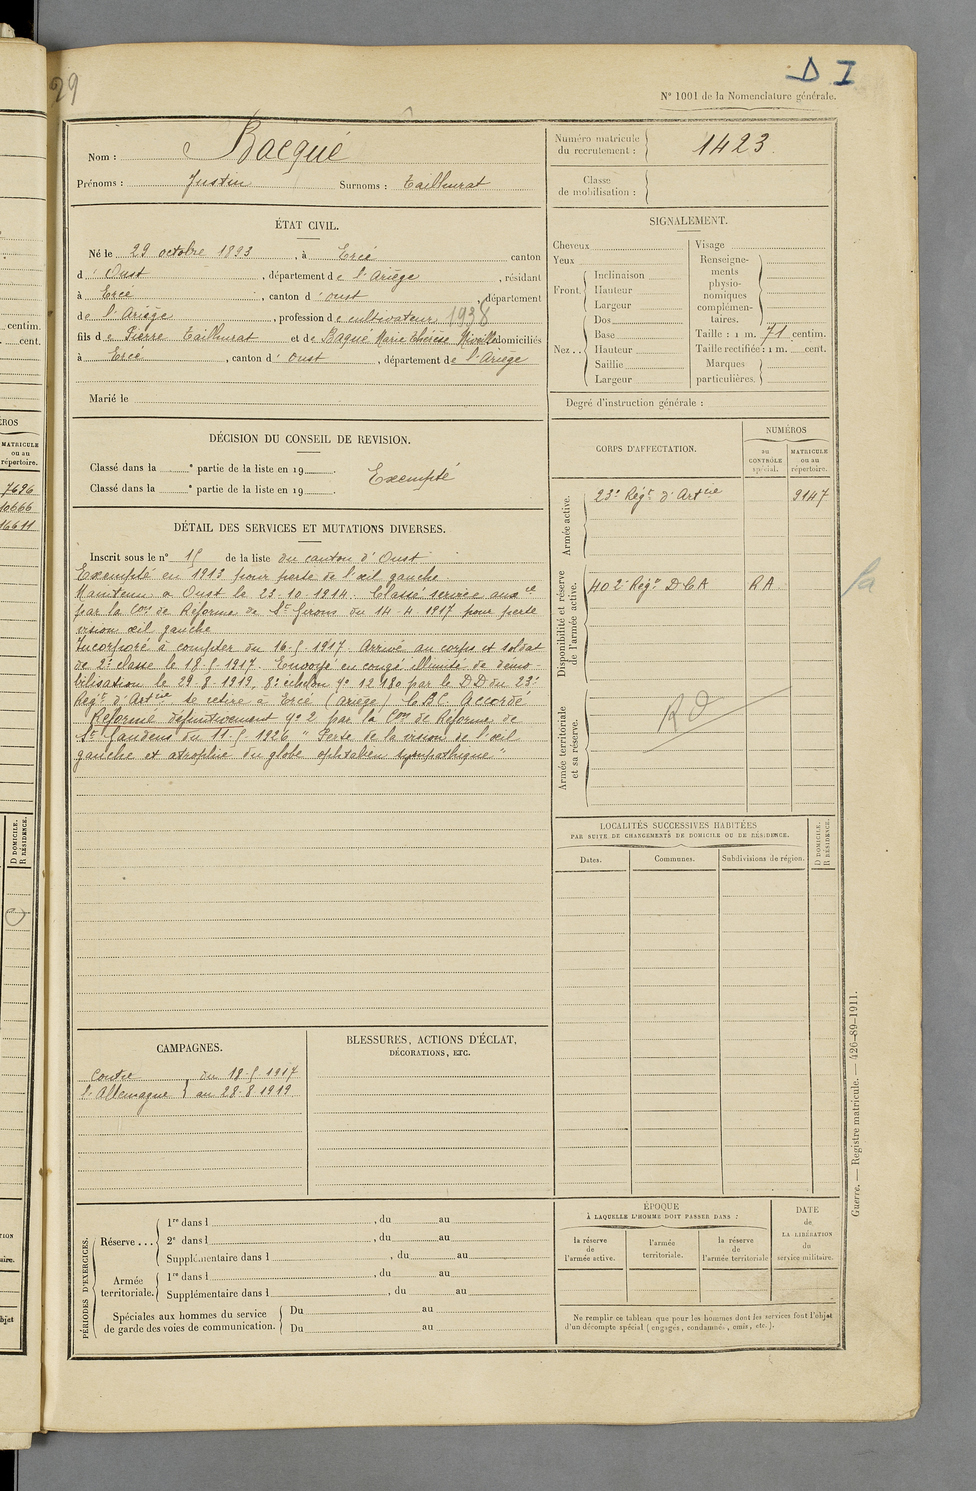 29
D I
N° 1001 de la Nomenclature générale.
Nom : Bacqué
Prénoms : Justin Surnoms : Tailhurat
Numéro matricule du recrutement : 1423
Classe de mobilisation :
ÉTAT CIVIL.
Né le 29 octobre 1893, à Ercé canton
d'Oust, département de l'Ariège, résidant
à Ercé, canton d'Oust, département
de l'Ariège, profession de cultivateur 1938
fils de Pierre Tailhurat et de Baqué Marie Thérèse domiciliés
à Ercé, canton d'Oust, département de l'Ariège
Marié le
SIGNALEMENT.
Cheveux
Yeux
Front. Inclinaison
Hauteur
Largeur
Nez .. Dos
Base
Hauteur
Saillie
Largeur
Visage
Renseignements physionomiques complémentaires.
Taille : 1 m. 71 centim.
Taille rectifiée : 1 m. cent.
Marques particulières.
Degré d'instruction générale :
DÉCISION DU CONSEIL DE REVISION.
Classé dans la e partie de la liste en 19 .
Classé dans la e partie de la liste en 19 .
Exempté
DÉTAIL DES SERVICES ET MUTATIONS DIVERSES.
Inscrit sous le n° 15 de la liste du canton d'Oust
Exempté en 1913 pour perte de l'œil gauche.
Maintenu à Oust le 23-10-1914. Classé service aux re
par la Con de Réforme de St Girons du 14-4-1917 pour perte
vision œil gauche
Incorporé à compter du 16-5-1917. Arrivé au corps et soldat
de 2e classe le 18-5-1917. Envoyé en congé illimité de démo-
bilisation le 29-8-1919, 8e échelon No 12180 par le DD du 23e
Régt d'Artie se retire à Ercé (Ariège) C.B.C. Accordé
Réformé définitivement No 2 par la Con de Réforme de
St Gaudens du 11-5-1926 " Perte de la vision de l'œil
gauche et atrophie du globe ophtalmie sympathique "
CORPS D'AFFECTATION.
NUMÉROS
au CONTRÔLE spécial.
MATRICULE ou au répertoire.
Armée active.
23e Régt d'Artie 9147
Disponibilité et réserve de l'armée active.
402e Régt DCA RA.
Armée territoriale et sa réserve.
RD
LOCALITÉS SUCCESSIVES HABITÉES
PAR SUITE DE CHANGEMENTS DE DOMICILE OU DE RÉSIDENCE.
Dates. Communes. Subdivisions de région. D DOMICILE. R RÉSIDENCE.
CAMPAGNES.
Contre du 18-5-1917
l'Allemagne } au 28-8-1919
BLESSURES, ACTIONS D'ÉCLAT,
DÉCORATIONS, ETC.
PÉRIODES D'EXERCICES.
Réserve ... 1re dans l , du au
2e dans l , du au
Supplémentaire dans l , du au
Armée territoriale. 1re dans l , du au
Supplémentaire dans l , du au
Spéciales aux hommes du service de garde des voies de communication. Du au
Du au
ÉPOQUE
À LAQUELLE L'HOMME DOIT PASSER DANS :
la réserve de l'armée active.
l'armée territoriale.
la réserve de l'armée territoriale
DATE de LA LIBÉRATION du service militaire.
Ne remplir ce tableau que pour les hommes dont les services font l'objet
d'un décompte spécial (engagés, condamnés, omis, etc.).
Guerre. — Registre matricule. — 426-89-1911.
centim.
cent.
MATRICULE
ou au
répertoire.
7696
10666
16611
D DOMICILE.
R RÉSIDENCE.